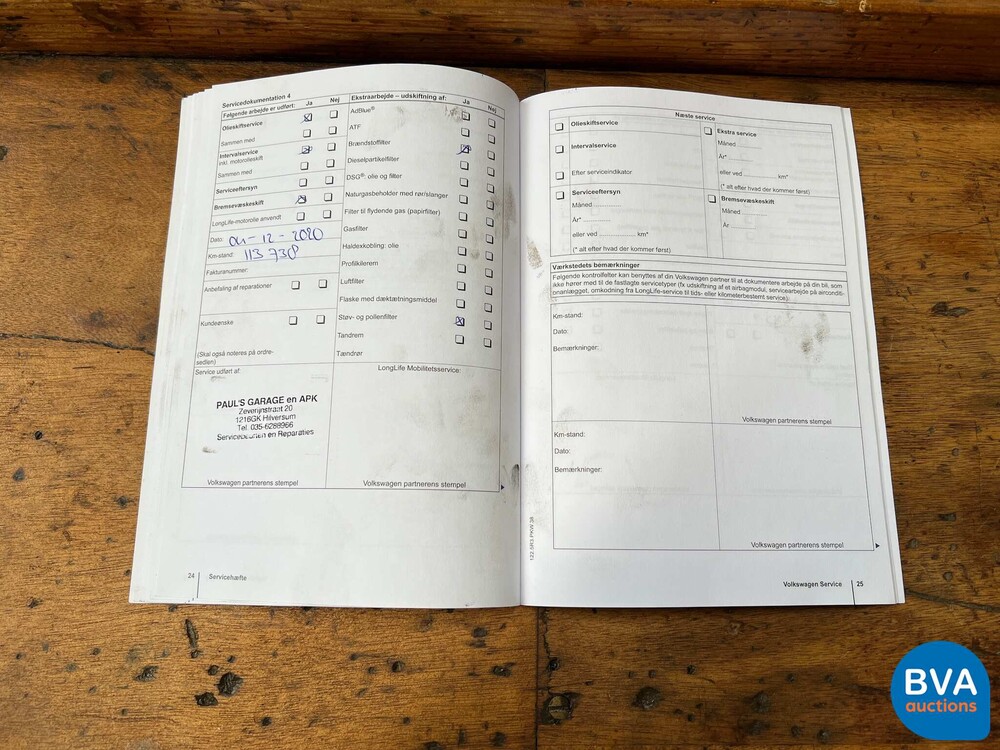 Servicedokumentation 4
Følgende arbejde er udført: Ja Nej
Olieskiftservice
Sammen med
Intervalservice
inkl. motorolieskift
Sammen med
Serviceeftersyn
Bremsevæskeskift
LongLife-motorolie anvendt
Dato: 04-12-2020
Km-stand: 113 738
Fakturanummer:
Anbefaling af reparationer
Kundeønske
(Skal også noteres på ordre-
sedlen)
Ekstraarbejde – udskiftning af: Ja Nej
AdBlue®
ATF
Brændstoffilter
Dieselpartikelfilter
DSG®: olie og filter
Naturgasbeholder med rør/slanger
Filter til flydende gas (papirfilter)
Gasfilter
Haldexkobling: olie
Profilkilerem
Luftfilter
Flaske med dæktætningsmiddel
Støv- og pollenfilter
Tandrem
Tændrør
Service udført af:
PAUL'S GARAGE en APK
Zeverijnstraat 20
1216GK Hilversum
Tel. 035-6288966
Servicebeurten en Reparaties
Volkswagen partnerens stempel
LongLife Mobilitetsservice:
Volkswagen partnerens stempel
24 Servicehæfte
Næste service
Olieskiftservice
Intervalservice
Efter serviceindikator
Serviceeftersyn
Måned
År*
eller ved km*
(* alt efter hvad der kommer først)
Ekstra service
Måned
År*
eller ved km*
(* alt efter hvad der kommer først)
Bremsevæskeskift
Måned
År
Værkstedets bemærkninger
Følgende kontrolfelter kan benyttes af din Volkswagen partner til at dokumentere arbejde på din bil, som
ikke hører med til de fastlagte servicetyper (fx udskiftning af et airbagmodul, servicearbejde på airconditi-
onanlægget, omkodning fra LongLife-service til tids- eller kilometerbestemt service).
Km-stand:
Dato:
Bemærkninger:
Volkswagen partnerens stempel
Km-stand:
Dato:
Bemærkninger:
Volkswagen partnerens stempel
Volkswagen Service 25
BVA
auctions